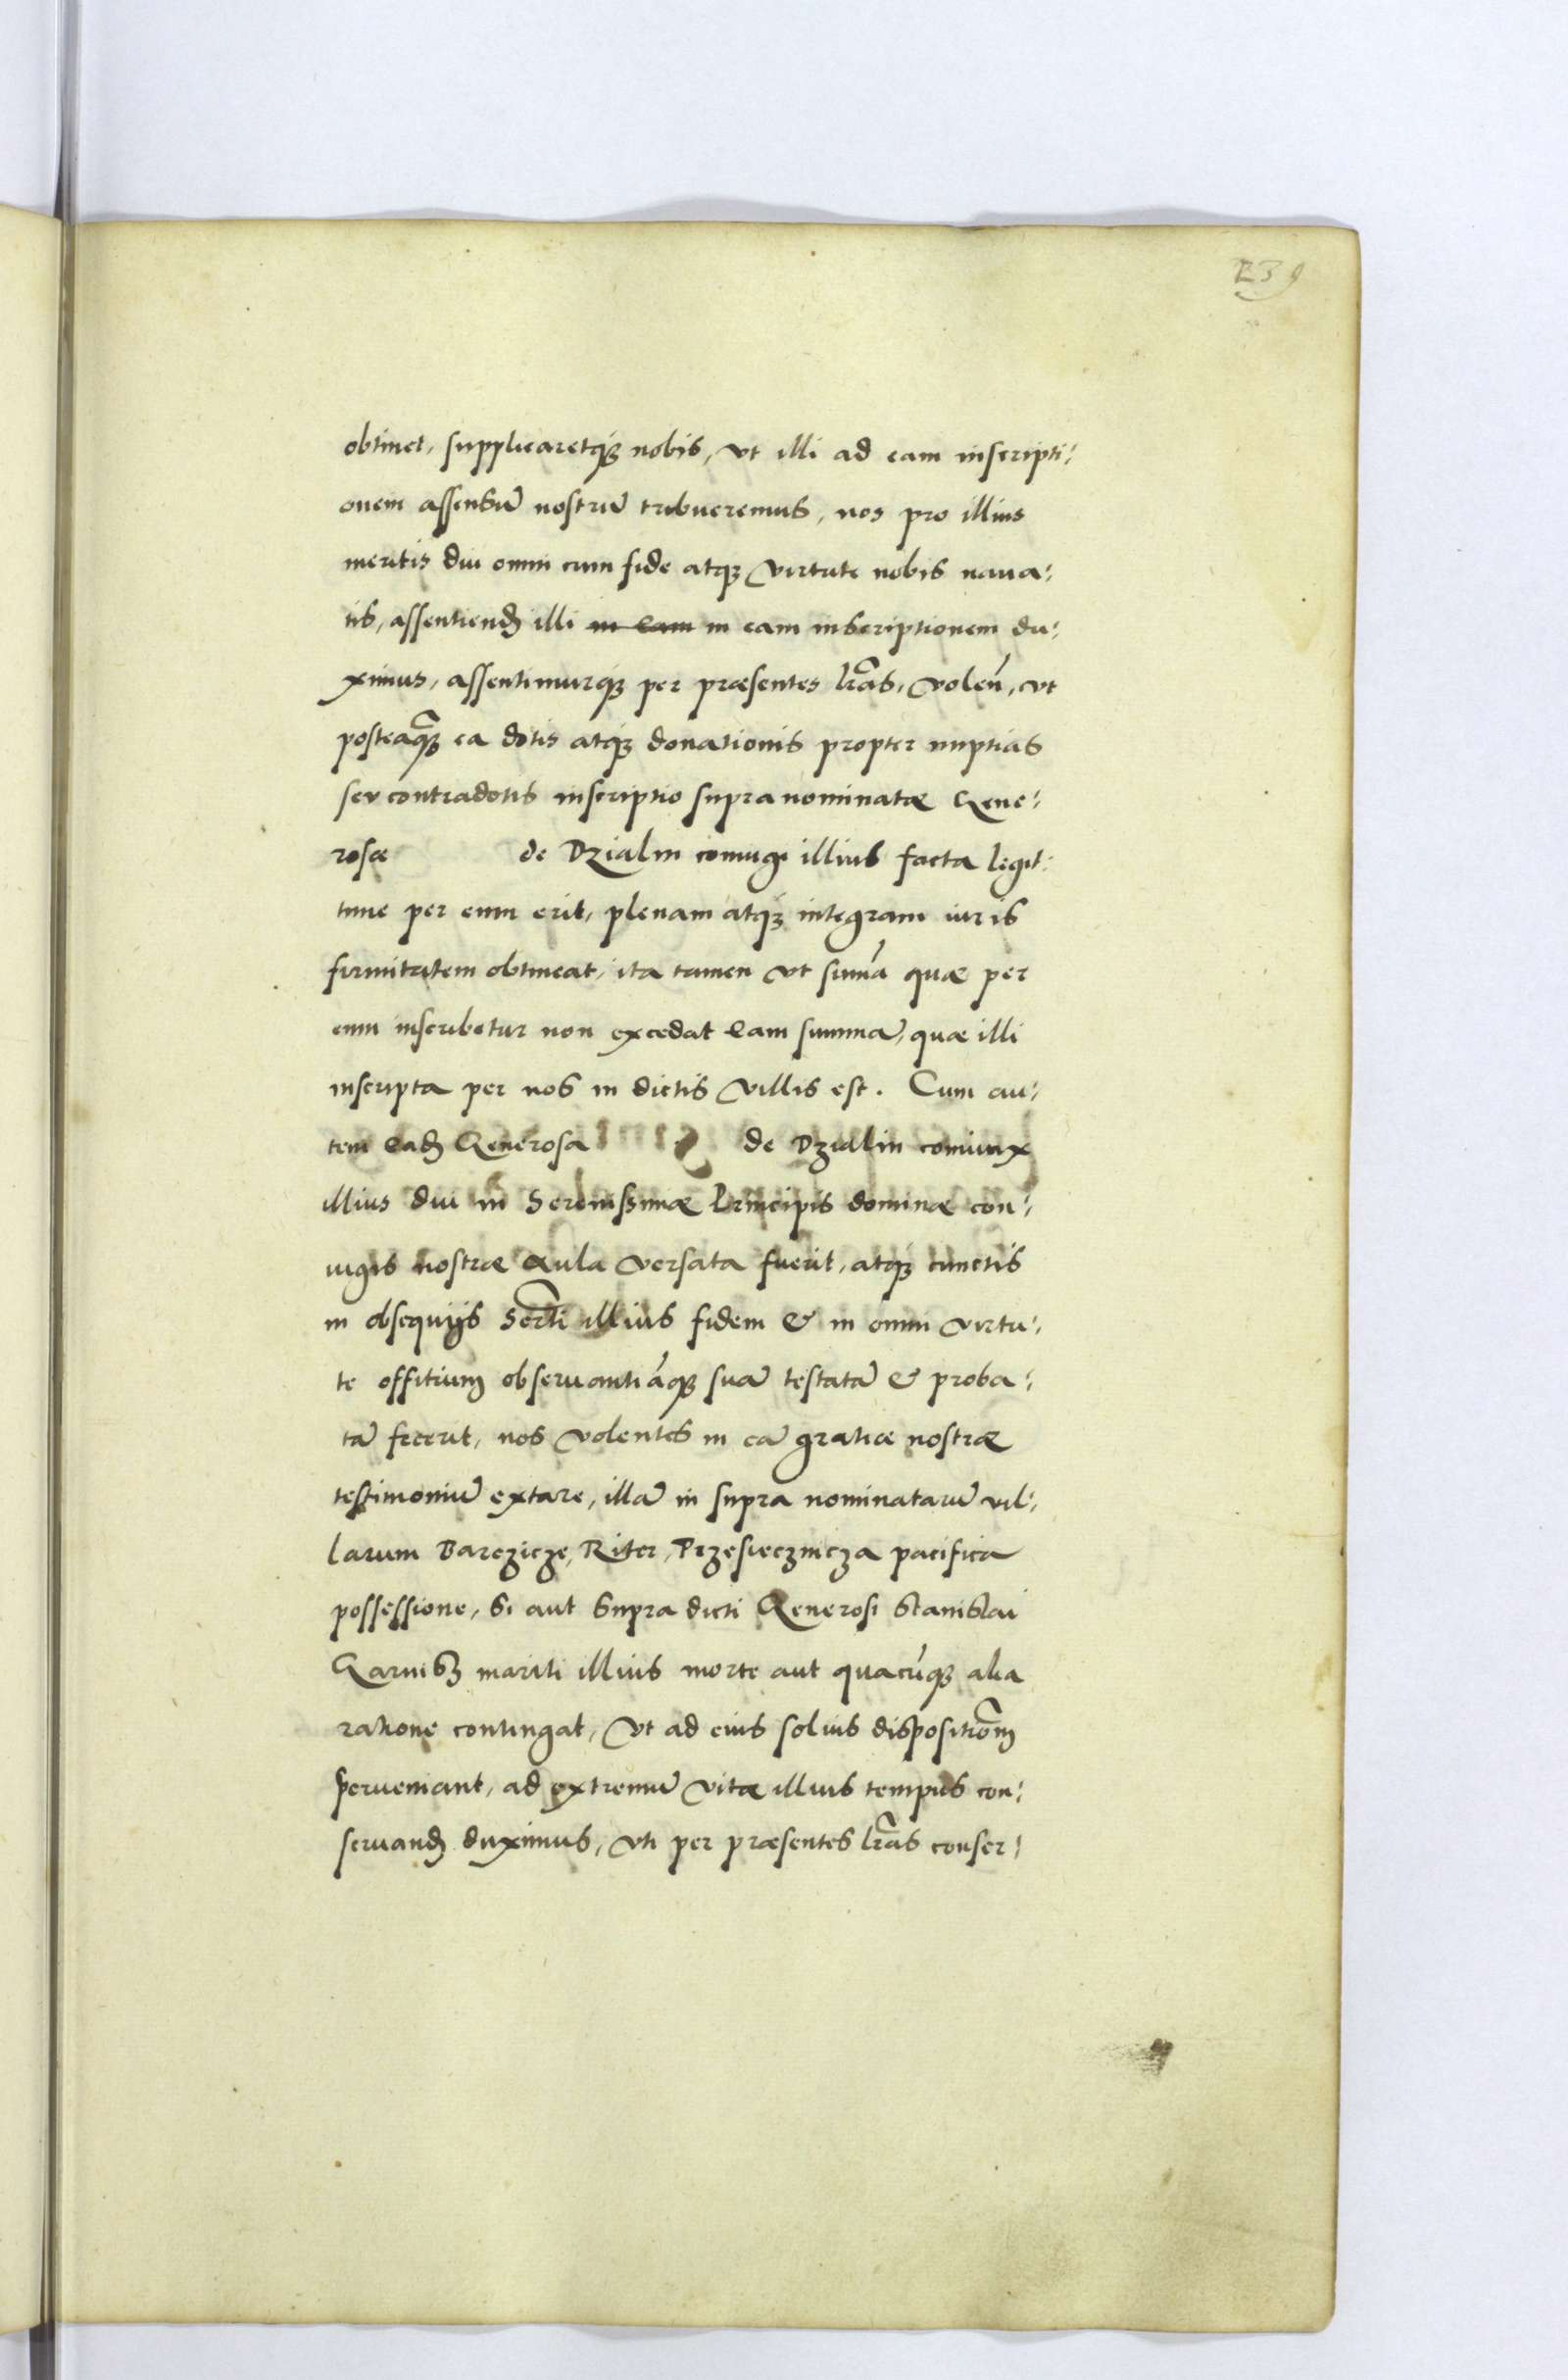 239
obtinet, supplicaretq₃ nobis, vt illi ad eam inscripti:
onem assensū nostrū tribueremus, nos pro illius
meritis diu omni cum fide atq₃ virtute nobis naua:
tis, assentiend illi in eam in eam inscriptionem du:
ximus, assentimurq₃ per præsentes lr̃as, volen̄, vt
posteaq̃₃ ea dotis atq₃ donationis propter nuptias
seu contradotis inscriptio supra nominatæ Gene:
rosæ de Dzialin coniugi illius facta legit:
time per eum erit, plenam atq₃ integram iuris
firmitatem obtineat, ita tamen vt sum̄a quæ per
eum inscribetur non excedat eam summā, quæ illi
inscripta per nos in dictis villis est. Cum au:
tem ead Generosa de Dzialin coniunx
illius diu in Serenissimæ Principis dominæ con:
iugis nostræ aula versata fuerit, atq₃ cunctis
in obsequijs Sert̃i illius fidem & in omni virtu:
te offitium obseruantiāq₃ suā testatā & proba:
tā fecerit, nos volentes in eā gratiæ nostræ
testimoniū extare, illā in supra nominatarū vil:
larum Barczicze, Riter, Przesiecznicza pacifica
possessione, si aut supra dicti Generosi Stanislai
Garnis₃ mariti illius morte aut quacūq₃ alia
ratione contingat, vt ad eius solius dispositiōm
perueniant, ad extremū vitæ illius tempus con:
seruand duximus, vti per præsentes lr̃as conser: